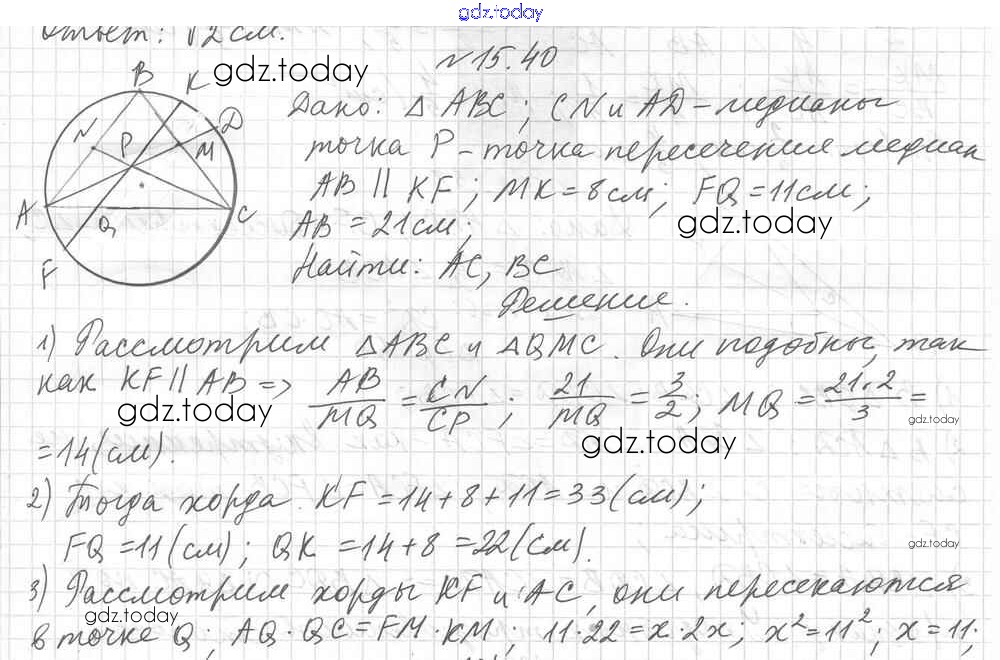 gdz.today
Ответ: √2 см.
№ 15.40
gdz.today
B K
N D
P M
A Q C
F
Дано: △ ABC; CN и AD – медианы
точка P – точка пересечения медиан
AB ∥ KF; MK = 8 см; FQ = 11 см;
AB = 21 см;
gdz.today
Найти: AC, BC
Решение.
1) Рассмотрим △ABC и △QMC. Они подобны, так
как KF ∥ AB => AB/MQ = CN/CP; 21/MQ = 3/2; MQ = 21·2/3 =
gdz.today
gdz.today
= 14 (см).
gdz.today
2) Тогда хорда KF = 14 + 8 + 11 = 33 (см);
FQ = 11 (см); QK = 14 + 8 = 22 (см).
gdz.today
3) Рассмотрим хорды KF и AC, они пересекаются
gdz.today
в точке Q; AQ · QC = FM · KM; 11 · 22 = x · 2x; x² = 11²; x = 11;
gdz.today